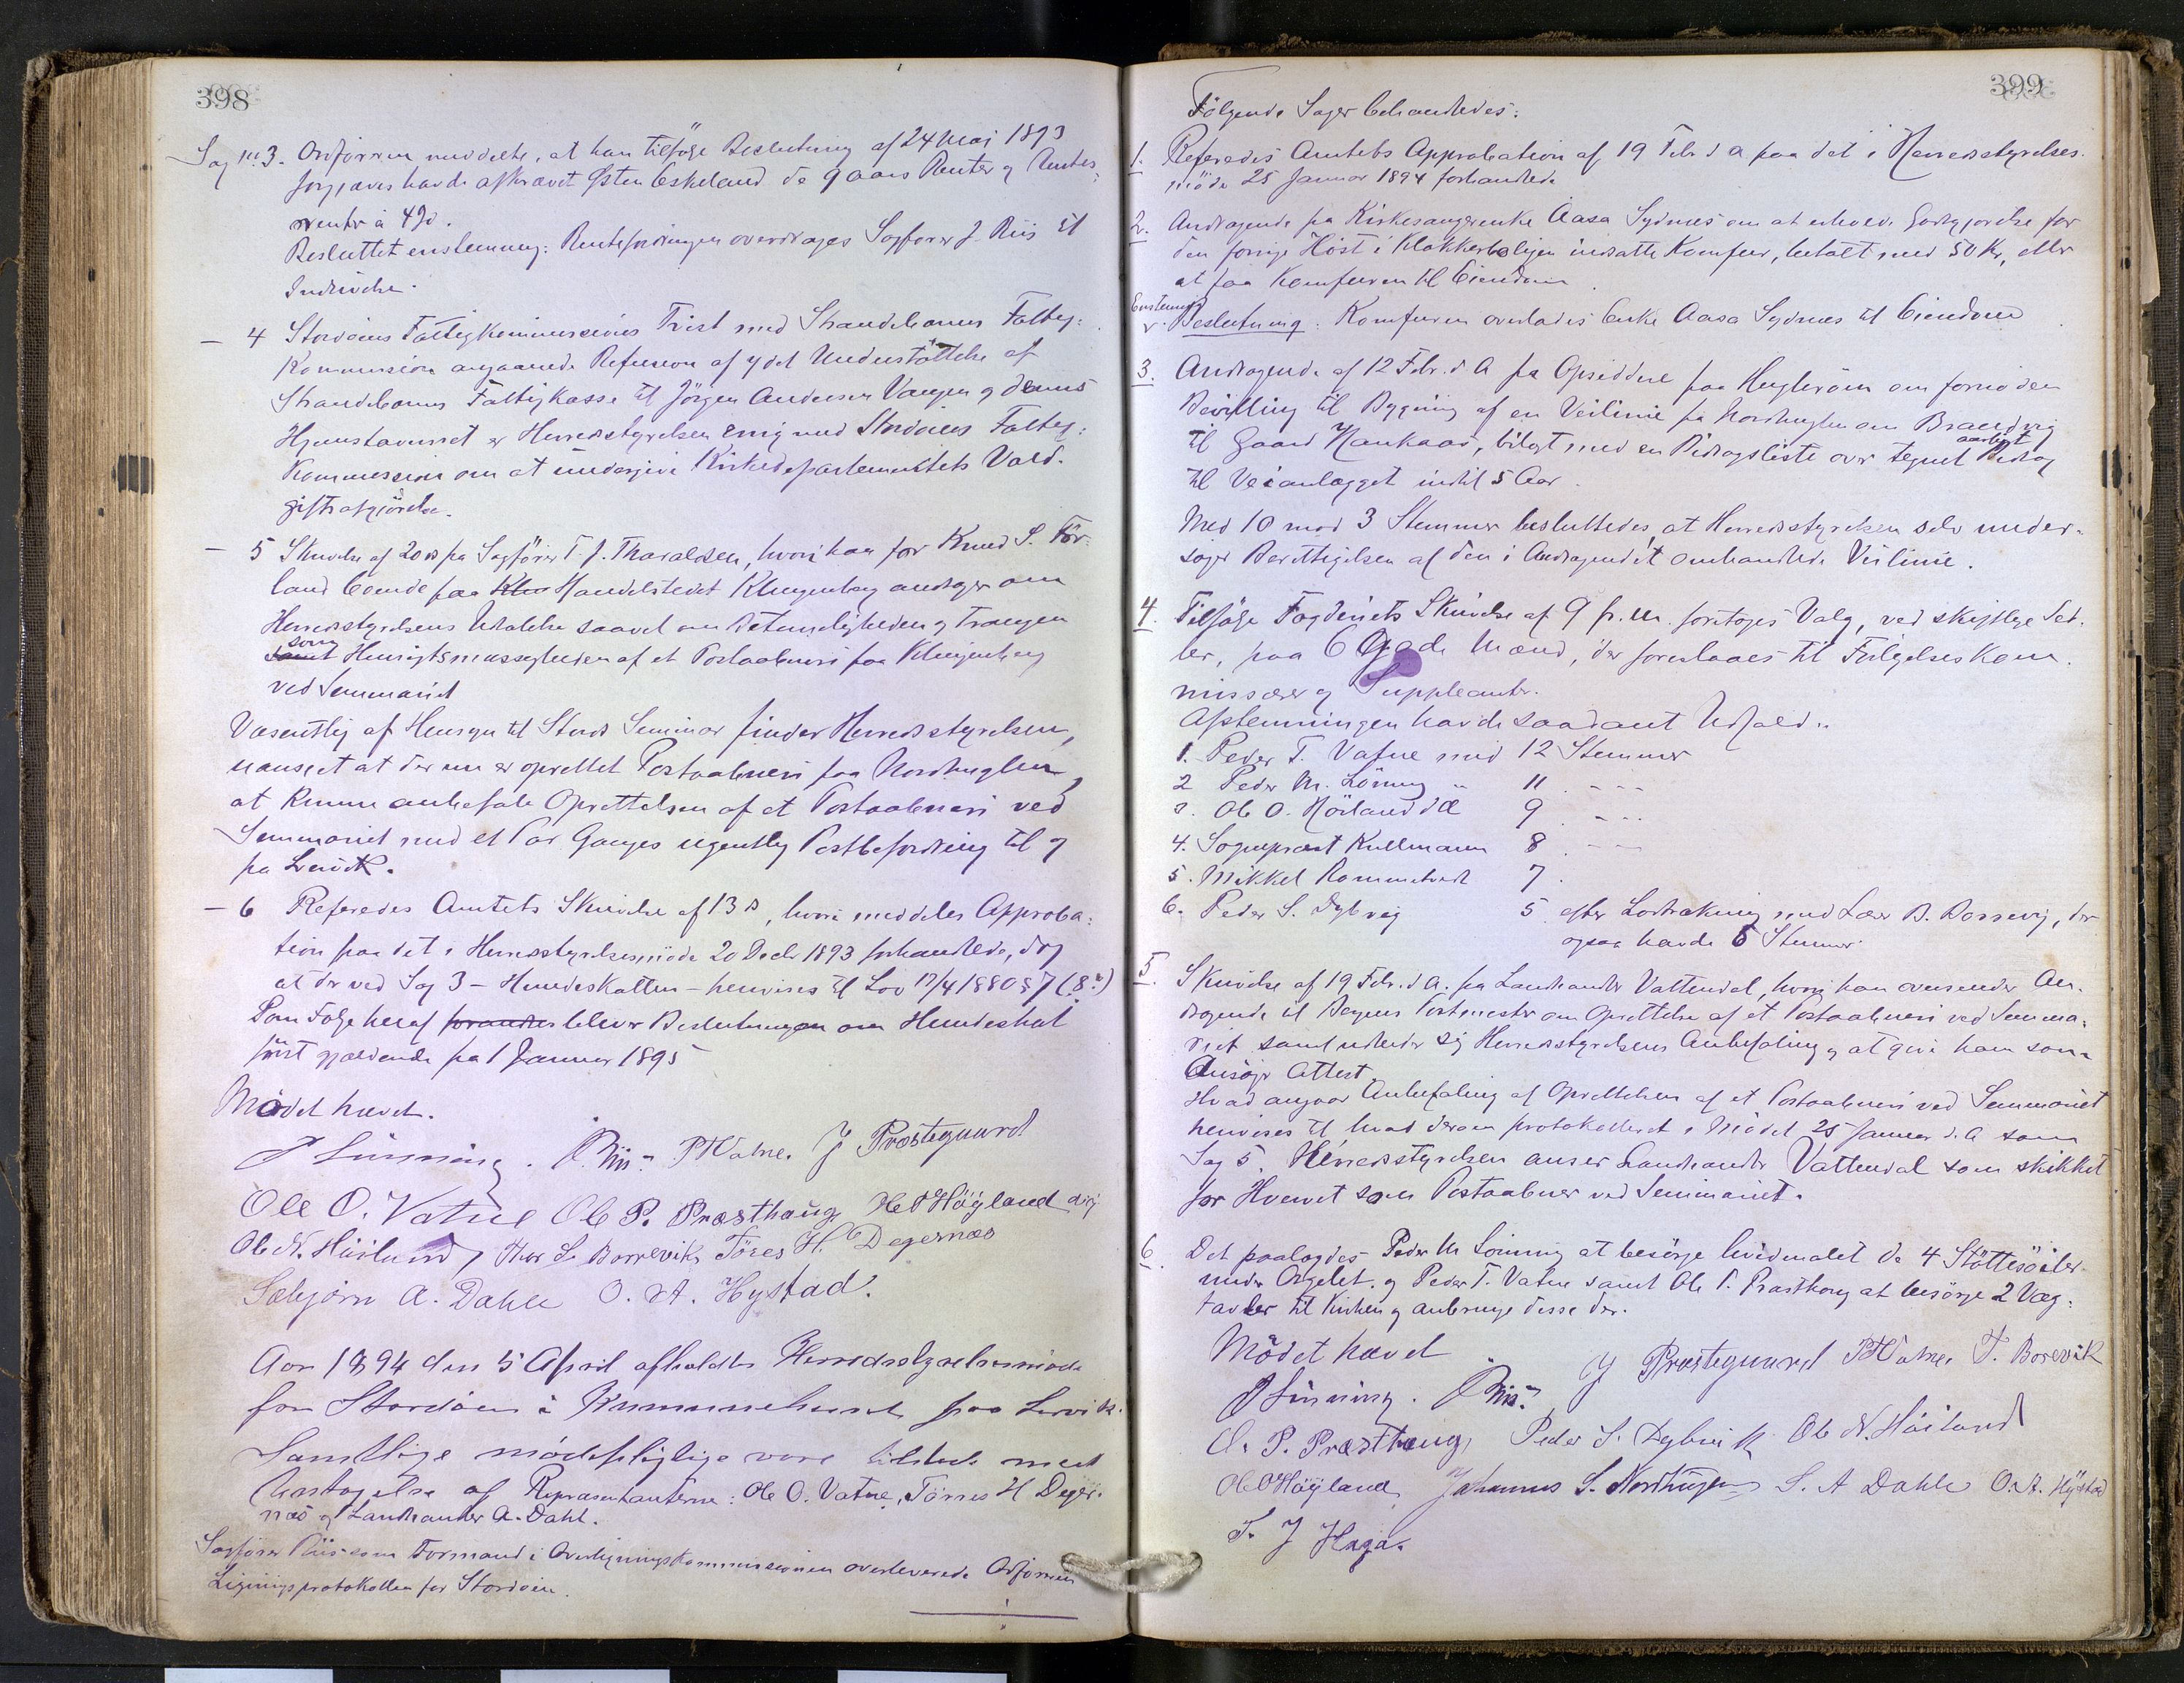 398
Sag No 3. Ordføreren meddelte, at han tilføge Beslutning af 24 Mai 1893
forgjæves havde afkrævet Østen Eskeland de 9 aars Renter og Rentes-
renter à 4%.
Besluttet enstemmig: Rentefordringen overdrages Sagfører J. Riis til
Inddrivelse.
– 4 Stordøens Fattigkommissions Tvist med Strandebarms Fattig-
kommission angaaende Refusion af ydet Understøttelse af
Strandebarms Fattigkasse til Jörgen Andersen Vangen og dennes
Hjemstavnsret er Herredsstyrelsen enig med Stordøens Fattig-
kommission om at undergive Kirkedepartementets Vold-
giftsafgjörelse.
– 5 Skrivelse af 20 ds fra Sagförer T. J. Tharaldsen, hvori han for Knud S. För-
land boende paa Handelsstedet Klingenberg andrager om
Herredsstyrelsens Udtalelse saavel om Betimeligheden og Trangen
som Hensigtsmæssigheden af et Postaabneri paa Klingenberg
ved Seminariet
Væsentlig af Hensyn til Stords Seminar finder Herredsstyrelsen,
uanseet at der nu er oprettet Postaabneri paa Nordhuglen,
at kunne anbefale Oprettelsen af et Postaabneri ved
Seminariet med et Par Ganges ugentlig Postbefordring til og
fra Lervik.
– 6 Referedes Amtets Skrivelse af 13 ds, hvori meddeles Approba-
tion paa det i Herredsstyrelsesmöde 20 Decbr 1893 forhandlede, dog
at der ved Sag 3 – Hundeskatten – henvises til Lov 17/4 1880 § 7 (8?)
Som Følge heraf forandres bliver Beslutningen om Hundeskat
först gjældende fra 1 Januar 1895
Mödet hævet.
P Lönning. J. Riis. P T Vatne. J Præstegaard
Ole O. Vatne Ole P. Præsthaug Ole O Höyland
Ole N. Höiland, Thor L. Borrevik, Töres H. Degernæs
Sæbjörn A. Dahle O. A. Hystad.
Aar 1894 den 5 April afholdtes Herredsstyrelsesmöde
for Stordöen i Kommunehuset paa Lervik.
Samtlige mödepligtige vare tilstede med
Undtagelse af Repræsentanterne: Ole O. Vatne, Törres H Deger-
næs og Landhandler A. Dahl.
Sagförer Riis som Formand i Overligningskommissionen overleverede Ordföreren
Ligningsprotokollen for Stordöen.
399
Fölgende Sager behandledes:
1. Referedes Amtets Approbation af 19 Febr d A paa det i Herredsstyrelses-
möde 25 Januar 1894 forhandlede
2. Andragende fra Kirkesangerenke Aasa Sydnes om at erholde Godtgjörelse for
den forrige Höst i Klokkerboligen indsatte Komfur, betalt med 50 Kr, eller
at faa Komfuren til Eiendom
Enstemmig
Beslutning: Komfuren overlades Enke Aasa Sydnes til Eiendom
3. Andragende af 12 Febr. d A fra Opsiddere paa Hugleröen om fornöden
Bevilling til Bygning af en Veilinie fra Nordhuglen om Brandvig
til Gaard Hankaas, bilagt med en Bidragsliste over tegnet aarligt Bidrag
til Veianlægget indtil 5 Aar.
Med 10 mod 3 Stemmer besluttedes, at Herredsstyrelsen selv under-
söger Berettigelsen af den i Andragendet omhandlede Veilinie.
4. Tilföge Fogderiets Skrivelse af 9 f. M. foretoges Valg, ved skriftlige Sed-
ler, paa 6 Gode Mænd, der foreslaaes til Fölgelseskom-
missærer og Suppleanter.
Afstemningen havde saadant Udfald:
1. Peder T. Vatne med 12 Stemmer
2 Peder M. Lönning " 11 - - -
3. Ole O. Höiland d Æ 9 - - -
4. Sogneprest Kullmann 8 - - -
5. Mikkel Rommetvedt 7
6. Peder S. Dybvig 5 efter Lodtrækning med Lær. B. Borrevig, der
ogsaa havde 5 Stemmer
5. Skrivelse af 19 Febr. d A. fra Landhandler Vattendal, hvori han oversender An-
dragende til Bergens Postmester om Oprettelse af et Postaabneri ved Semina-
riet samt udbeder sig Herredsstyrelsens Anbefaling og at give ham som
Ansöger Attest
Hvad angaar Anbefaling af Oprettelsen af et Postaabneri ved Seminariet
henvises til hvad derom protokolleret i Mödet 25 Januar d. A som
Sag 5. Herredsstyrelsen anser Landhandler Vattendal som skikket
for Hvervet som Postaabner ved Seminariet.
6. Det paalagdes Peder M Lönning at besörge hvidmalet de 4 Stöttesöiler
under Orgelet, og Peder T. Vatne samt Ole P. Præsthaug at besörge 2 Væg-
tavler til Kirken og anbringe disse der.
Mödet hævet
P Lönning. J. Riis. J Præstegaard P T Vatne. T. Borevik
O. P. Præsthaug, Peder S. Dybvik Ole N. Höiland
Ole O Höyland, Johannes S. Nordhuglen S. A Dahle O. A. Hystad
T. J Haga.